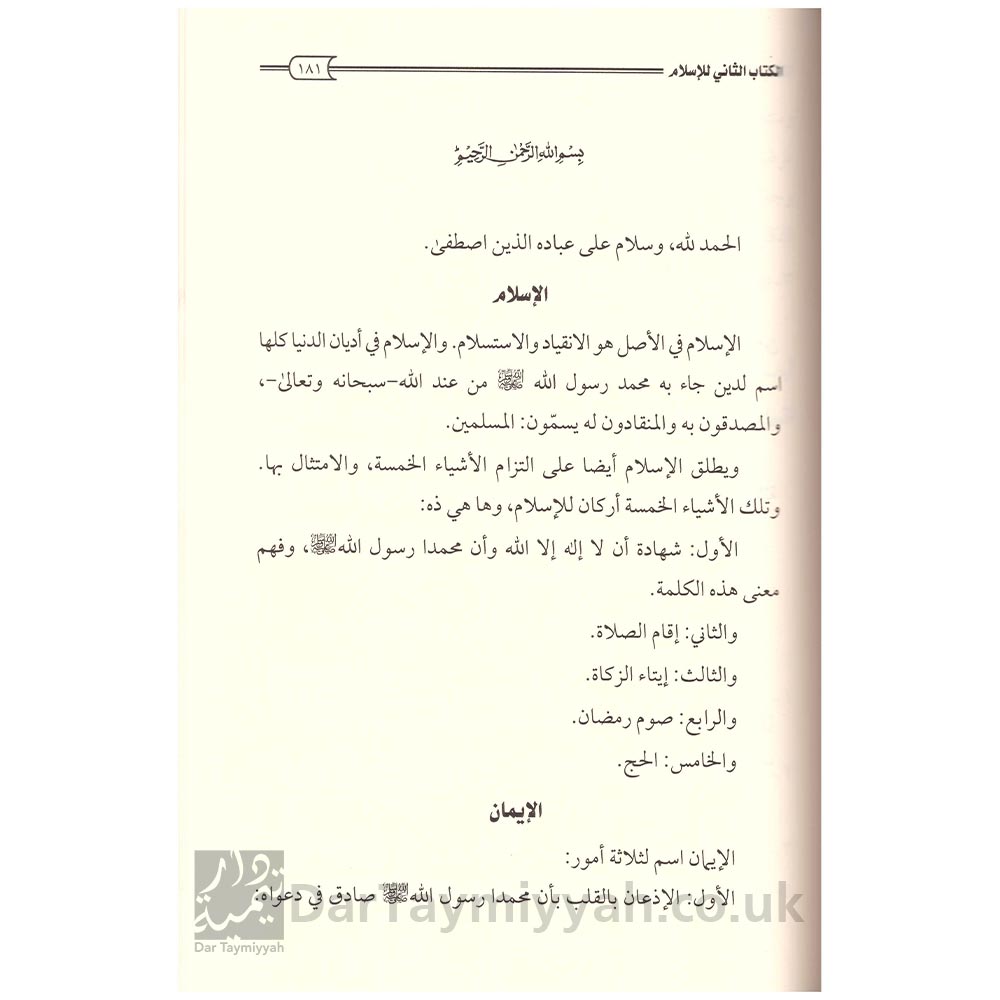 الكتاب الثاني للإسلام
١٨١
بسم الله الرحمن الرحيم
الحمد لله، وسلام على عباده الذين اصطفىٰ.
الإسلام
الإسلام في الأصل هو الانقياد والاستسلام. والإسلام في أديان الدنيا كلها
اسم لدين جاء به محمد رسول الله ﷺ من عند الله-سبحانه وتعالىٰ-،
والمصدقون به والمنقادون له يسمّون: المسلمين.
ويطلق الإسلام أيضا على التزام الأشياء الخمسة، والامتثال بها.
وتلك الأشياء الخمسة أركان للإسلام، وها هي ذه:
الأول: شهادة أن لا إله إلا الله وأن محمدا رسول اللهﷺ، وفهم
معنى هذه الكلمة.
والثاني: إقام الصلاة.
والثالث: إيتاء الزكاة.
والرابع: صوم رمضان.
والخامس: الحج.
الإيمان
الإيمان اسم لثلاثة أمور:
الأول: الإذعان بالقلب بأن محمدا رسول اللهﷺ صادق في دعواه.
دار تيمية
Dar Taymiyyah
DarTaymiyyah.co.uk